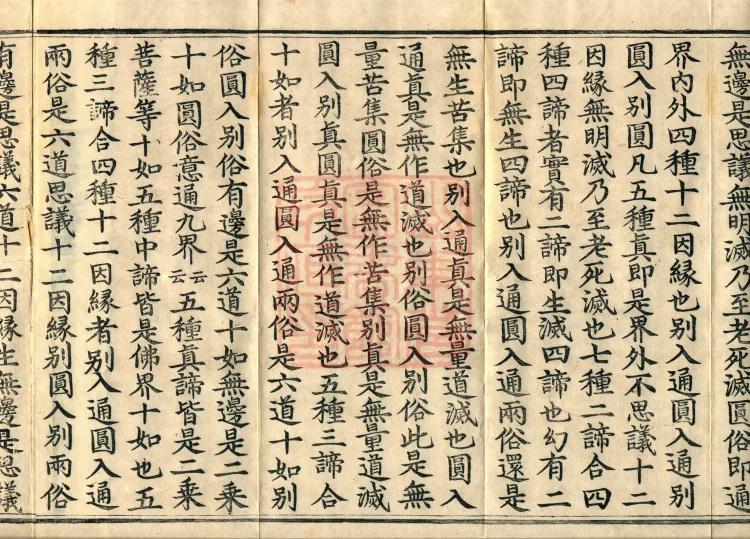 無邊是思議無明滅乃至老死滅圓俗即通
界内外四種十二因緣也別入通圓入通別
圓入別圓凡五種眞即是界外不思議十二
因緣無明滅乃至老死滅也七種二諦合四
種四諦者實有二諦即生滅四諦也幻有二
諦即無生四諦也別入通圓入通兩俗還是
無生苦集也別入通眞是無量道滅也圓入
通眞是無作道滅也別俗圓入別俗此是無
量苦集圓俗是無作苦集別眞是無量道滅
圓入別眞圓眞是無作道滅也五種三諦合
十如者別入通圓入通兩俗是六道十如別
俗圓入別俗有邊是六道十如無邊是二乘
十如圓俗意通九界云云五種眞諦皆是二乘
菩薩等十如五種中諦皆是佛界十如也五
種三諦合四種十二因緣者別入通圓入通
兩俗是六道思議十二因緣別圓入別兩俗
有邊是思議六道十二因緣生無邊是思議